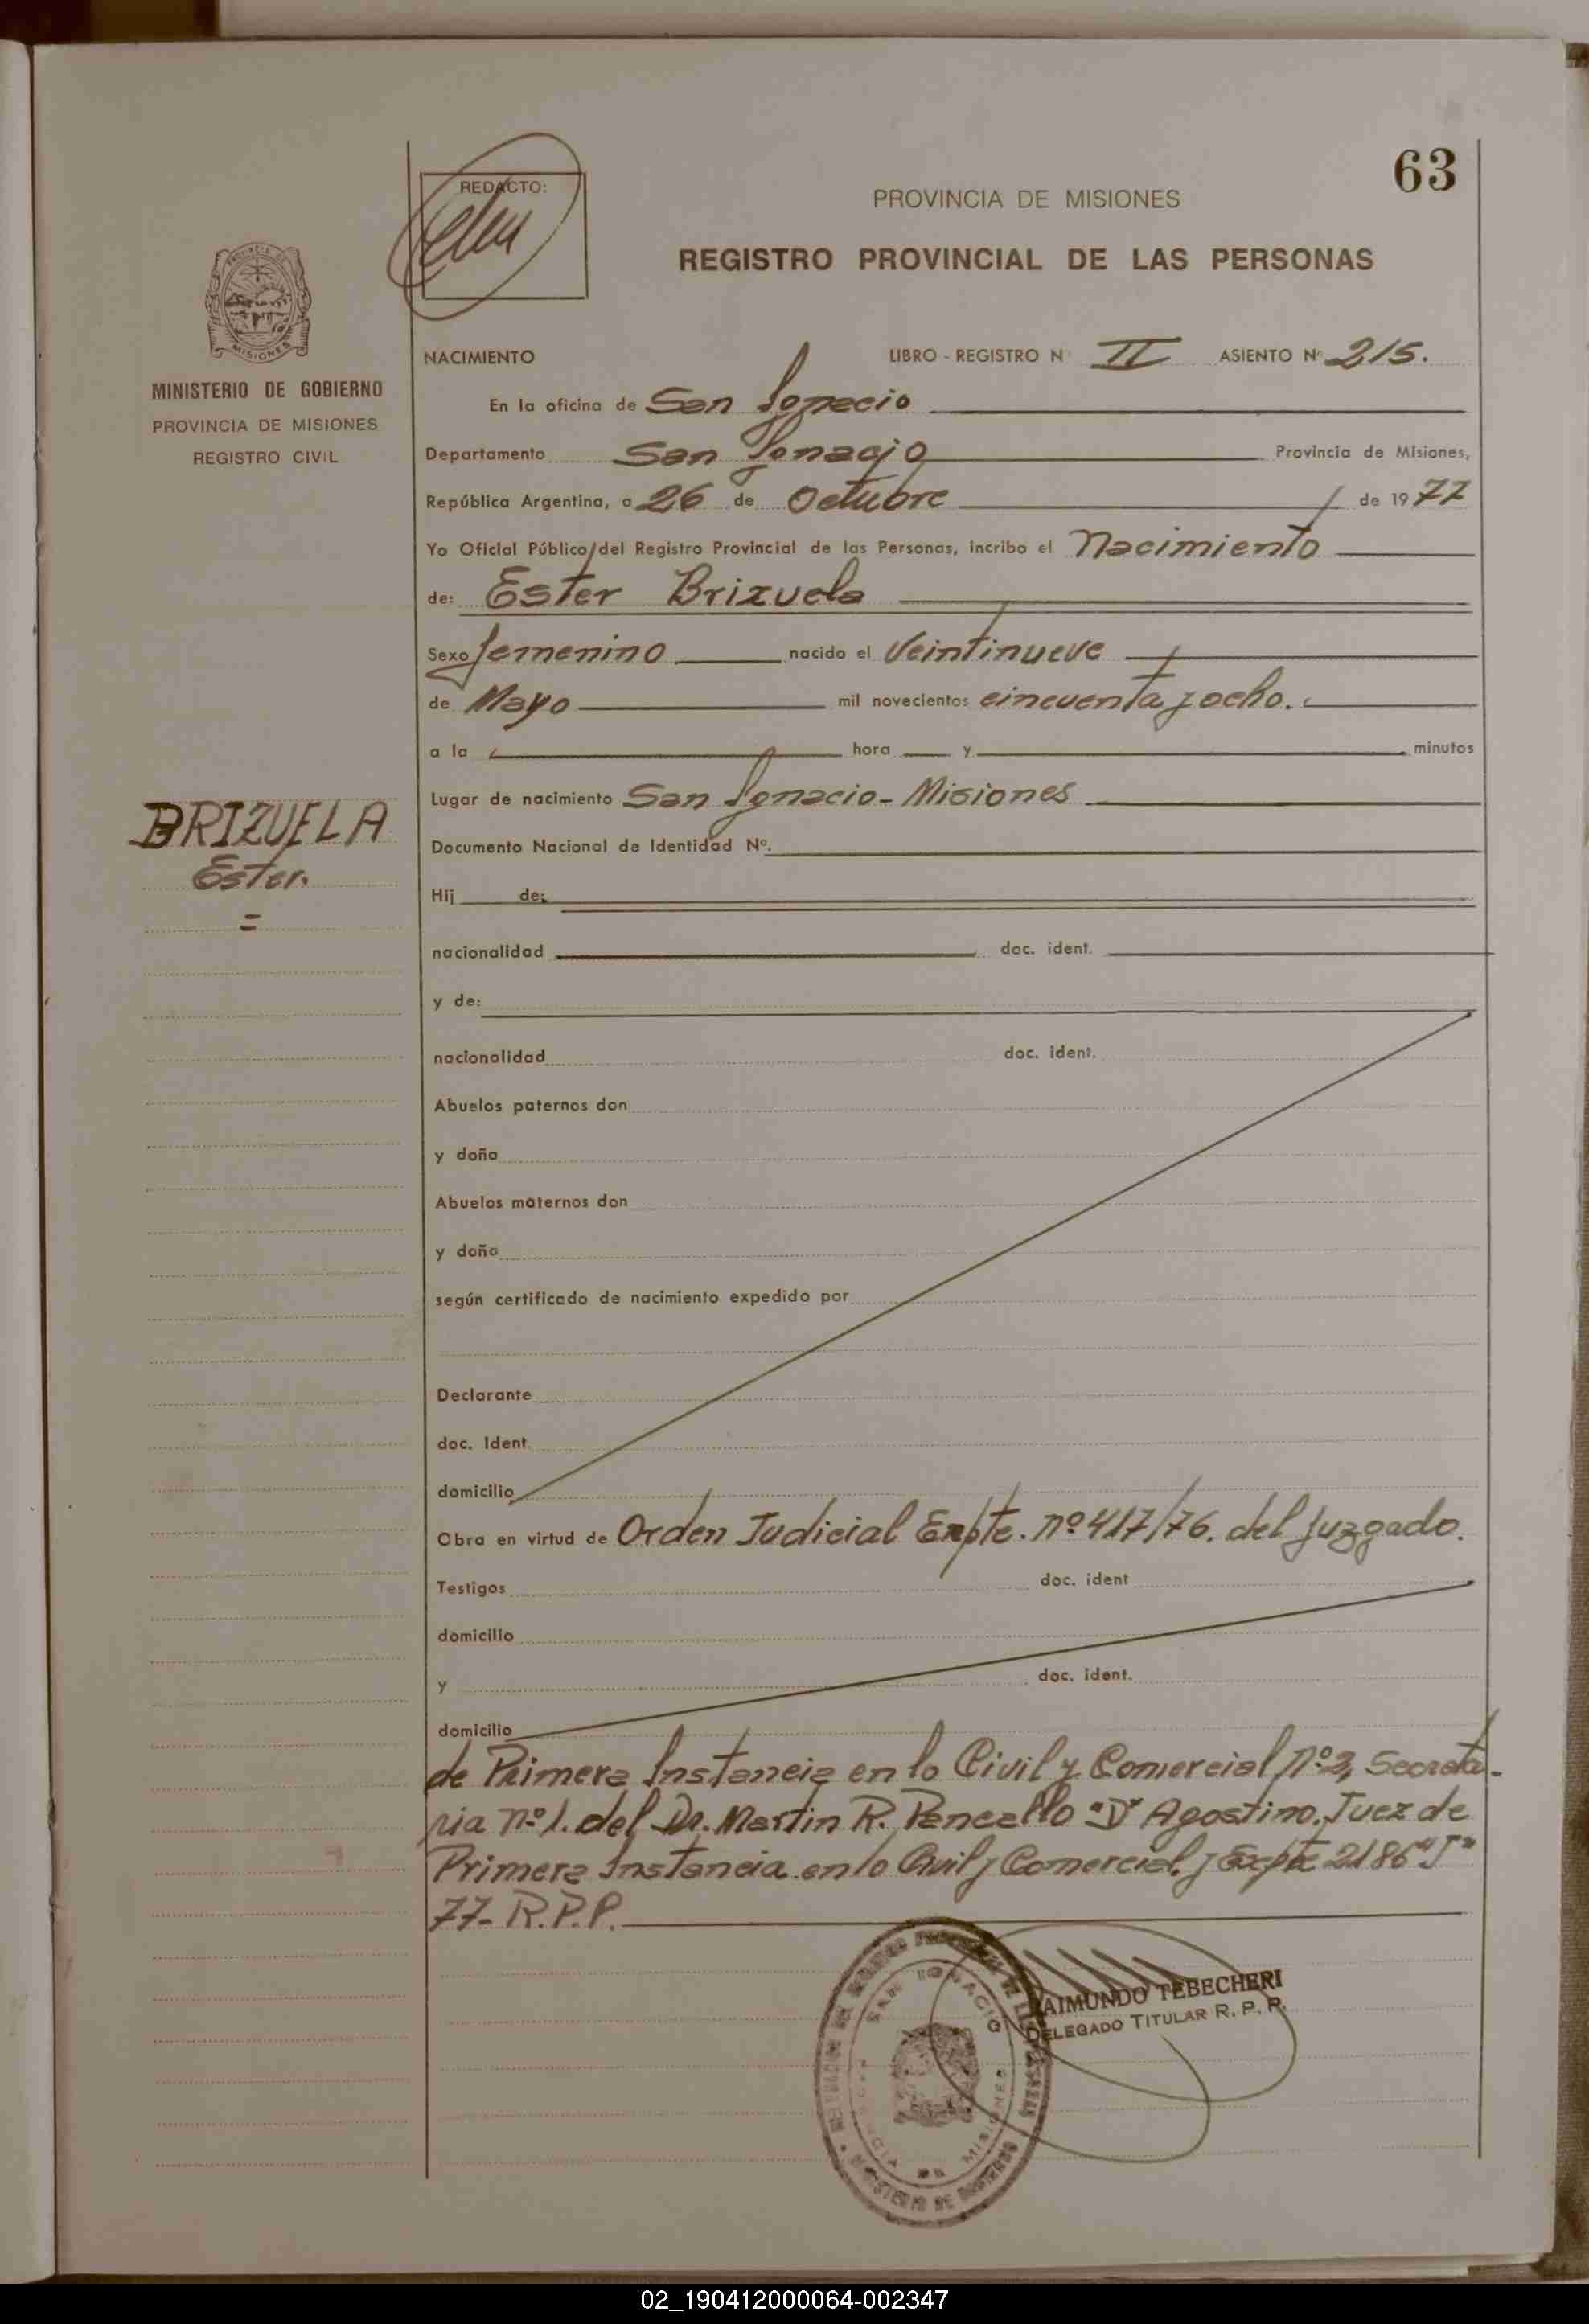 63
REDACTO:
PROVINCIA DE MISIONES
REGISTRO PROVINCIAL DE LAS PERSONAS
MISIONES
MINISTERIO DE GOBIERNO
PROVINCIA DE MISIONES
REGISTRO CIVIL
BRIZUELA
Ester.
=
NACIMIENTO LIBRO - REGISTRO Nº II ASIENTO Nº 215.
En la oficina de San Ignacio
Departamento San Ignacio Provincia de Misiones,
República Argentina, a 26 de Octubre de 1977
Yo Oficial Público/del Registro Provincial de las Personas, incribo el Nacimiento
de: Ester Brizuela
Sexo femenino nacido el Veintinueve
de Mayo mil novecientos cincuenta y ocho.
a la hora y minutos
Lugar de nacimiento San Ignacio - Misiones
Documento Nacional de Identidad Nº.
Hij de:
nacionalidad doc. ident.
y de:
nacionalidad doc. ident.
Abuelos paternos don
y doña
Abuelos maternos don
y doña
según certificado de nacimiento expedido por
Declarante
doc. Ident.
domicilio
Obra en virtud de Orden Judicial Expte. nº 417/76. del Juzgado.
Testigos doc. ident
domicilio
y doc. ident.
domicilio
de Primera Instancia en lo Civil y Comercial nº 2, Secreta-
ria nº 1. del Dr. Martin R. "D" Agostino. Juez de
Primera Instancia en lo Civil y Comercial. y Expte 2186 "J"
77- R.P.P.
SAN IGNACIO
MISIONES
MINISTERIO DE GOBIERNO
RAIMUNDO TEBECHERI
DELEGADO TITULAR R. P. P.
02_190412000064-002347